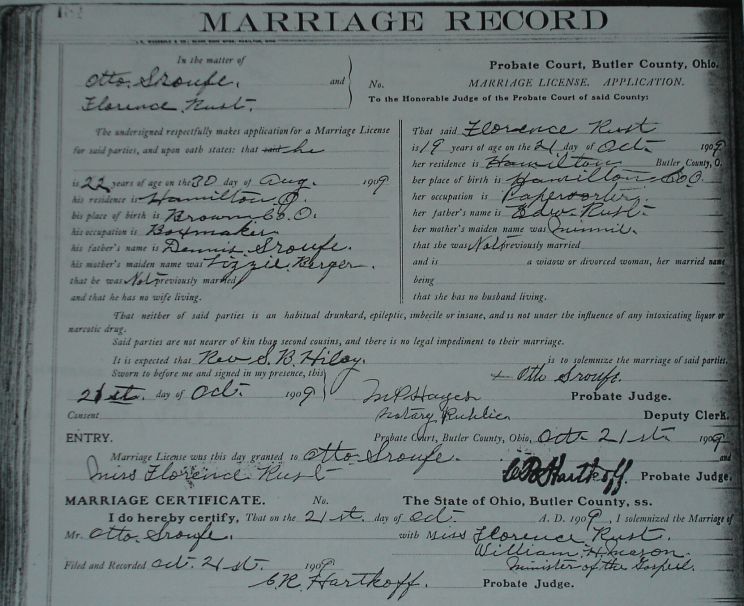 MARRIAGE RECORD
In the matter of
Otto Sroufe. and
Florence Rust.
No.
Probate Court, Butler County, Ohio.
MARRIAGE LICENSE. APPLICATION.
To the Honorable Judge of the Probate Court of said County:
The undersigned respectfully makes application for a Marriage License
for said parties, and upon oath states: that said he
is 22 years of age on the 30 day of Aug. 1909
his residence is Hamilton, O.
his place of birth is Brown Co. O.
his occupation is Boxmaker.
his father's name is Dennis Sroufe.
his mother's maiden name was Lizzie Berger.
that he was Not previously married
and that he has no wife living.
That said Florence Rust
is 19 years of age on the 21 day of Oct. 1909
her residence is Hamilton Butler County, O.
her place of birth is Hamilton Co O.
her occupation is Papersorter
her father's name is Edw. Rust.
her mother's maiden name was
that she was Not previously married
and is a widow or divorced woman, her married name
being
that she has no husband living.
That neither of said parties is an habitual drunkard, epileptic, imbecile or insane, and is not under the influence of any intoxicating liquor or
narcotic drug.
Said parties are not nearer of kin than second cousins, and there is no legal impediment to their marriage.
It is expected that Rev S. B. is to solemnize the marriage of said parties.
Sworn to before me and signed in my presence, this
x Otto Sroufe.
21st. day of Oct. 1909
M P Hayes Probate Judge.
Consent Notary Public Deputy Clerk.
ENTRY. Probate Court, Butler County, Ohio, Oct. 21st. 1909
Marriage License was this day granted to Otto Sroufe. and
Miss Florence Rust C R Hartkoff. Probate Judge.
MARRIAGE CERTIFICATE. No. The State of Ohio, Butler County, ss.
I do hereby certify, That on the 21st. day of Oct. A. D. 1909, I solemnized the Marriage of
Mr. Otto Sroufe. with Miss Florence Rust.
William H. Mason.
Minister of the Gospel.
Filed and Recorded Oct. 21st. 1909
C. R. Hartkoff. Probate Judge.